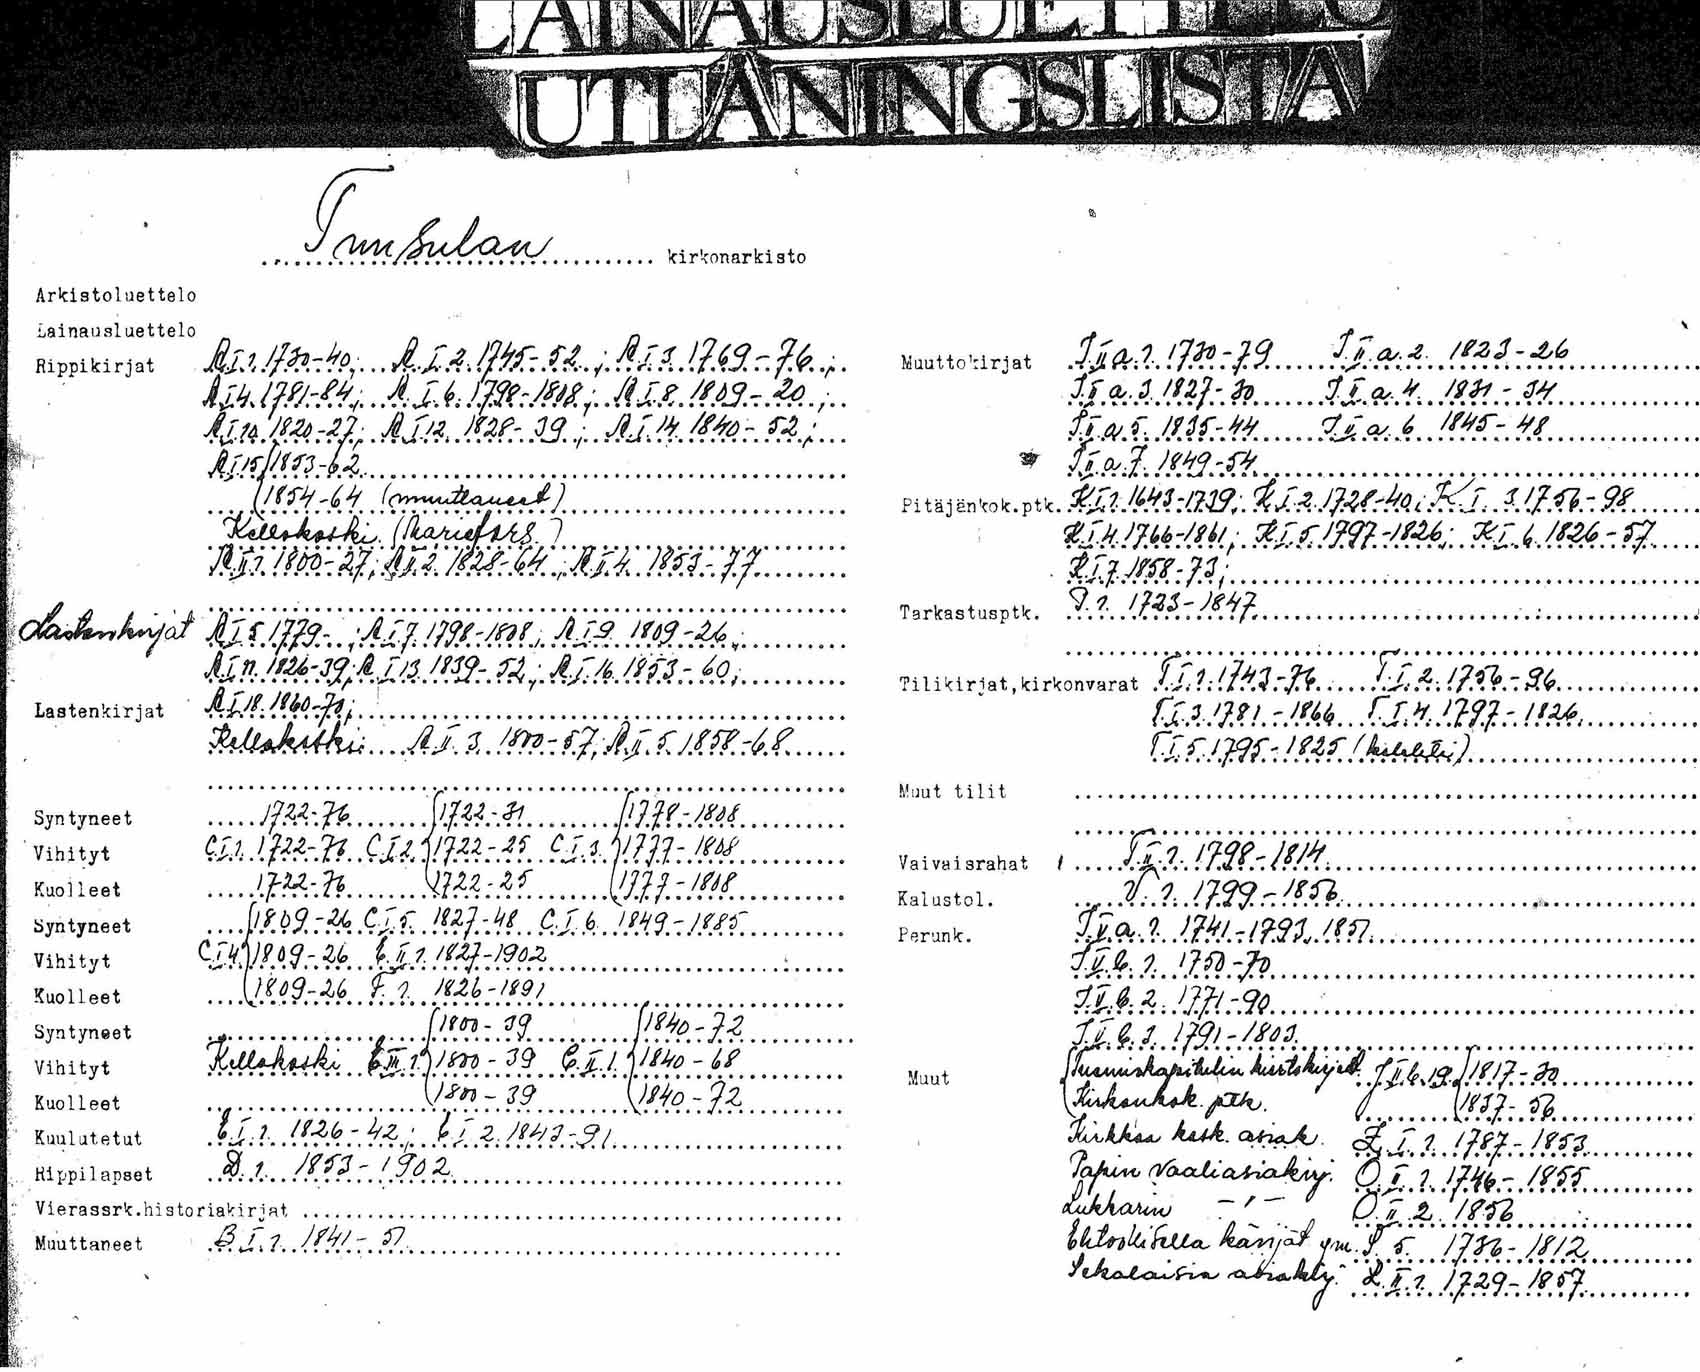 LAINAUSLUETTELO
UTLÅNINGSLISTA
Tuusulan kirkonarkisto
Arkistoluettelo
Lainausluettelo
Rippikirjat A.I.1. 1730-40; A.I.2. 1745-52; A.I.3. 1769-76;
A.I.4. 1781-84; A.I.6. 1798-1808; A.I.8. 1809-20;
A.I.10. 1820-27; A.I.12. 1828-39; A.I.14. 1840-52;
A.I.15 1853-62
1854-64 (muuttaneet)
Kellokoski (Mariefors)
A.II.1. 1800-27; A.II.2. 1828-64; A.II.4. 1853-77
Lastenkirjat A.I.5. 1779- ; A.I.7. 1798-1808; A.I.9. 1809-26;
A.I.11. 1826-39; A.I.13. 1839-52; A.I.16. 1853-60;
Lastenkirjat A.I.18. 1860-70;
Kellokoski: A.II.3. 1800-57; A.II.5. 1858-68
Syntyneet 1722-76 1722-31 1778-1808
Vihityt C.I.1. 1722-76 C.I.2. 1722-25 C.I.3. 1777-1808
Kuolleet 1722-76 1722-25 1777-1808
Syntyneet 1809-26 C.I.5. 1827-48 C.I.6. 1849-1885
Vihityt C.I.4. 1809-26 E.II.1. 1827-1902
Kuolleet 1809-26 F.1. 1826-1891
Syntyneet 1800-39 1840-72
Vihityt Kellokoski C.III.1. 1800-39 C.II.1. 1840-68
Kuolleet 1800-39 1840-72
Kuulutetut E.I.1. 1826-42; E.I.2. 1843-91
Rippilapset D.1. 1853-1902
Vierassrk.historiakirjat
Muuttaneet B.I.1. 1841-51
Muuttokirjat J.II.a.1. 1730-79 J.II.a.2. 1823-26
J.II.a.3. 1827-30 J.II.a.4. 1831-34
J.II.a.5. 1835-44 J.II.a.6 1845-48
J.II.a.7. 1849-54
Pitäjänkok.ptk. K.I.1. 1643-1739; K.I.2. 1728-40; K.I.3. 1756-98
K.I.4. 1766-1861; K.I.5. 1797-1826; K.I.6. 1826-57
K.I.7. 1858-73;
Tarkastusptk. P.1. 1723-1847
Tilikirjat,kirkonvarat T.I.1. 1743-76 T.I.2. 1756-96
T.I.3. 1781-1866 T.I.4. 1797-1826
T.I.5. 1795-1825
Muut tilit
Vaivaisrahat T.II.1. 1798-1814
Kalustol. V.1. 1799-1856
Perunk. J.V.a.1. 1741-1793, 1851
J.V.b.1. 1750-70
J.V.b.2. 1771-90
J.V.b.3. 1791-1803
Muut Tuomiokapitulin kiertokirjeet J.II.b.19. 1817-30
Kirkonkok. ptk. 1837-56
Kirkkoa kosk. asiak. Z.I.1. 1787-1853
Papin vaaliasiakirj. O.II.1. 1746-1855
Lukkarin -"- O.II.2. 1856
Ehtoollisella kävijät ym. S.5. 1736-1812
Sekalaisia asiakirj. Z.II.1. 1729-1857